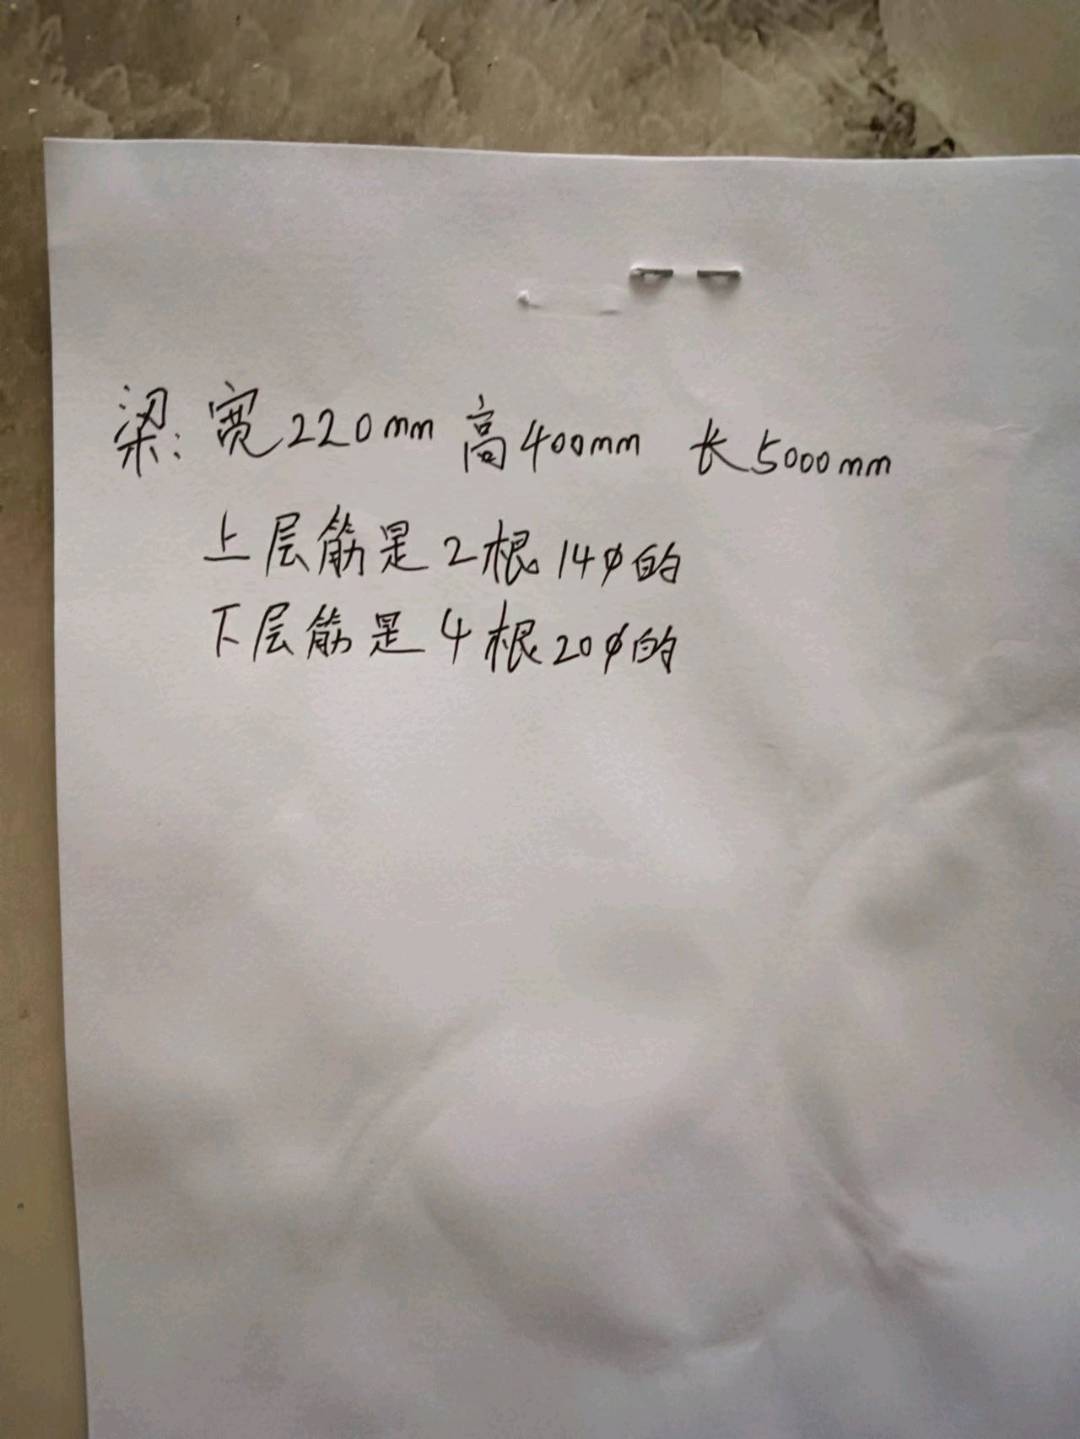 梁：宽220mm 高400mm 长5000mm
上层筋是2根14φ的
下层筋是4根20φ的